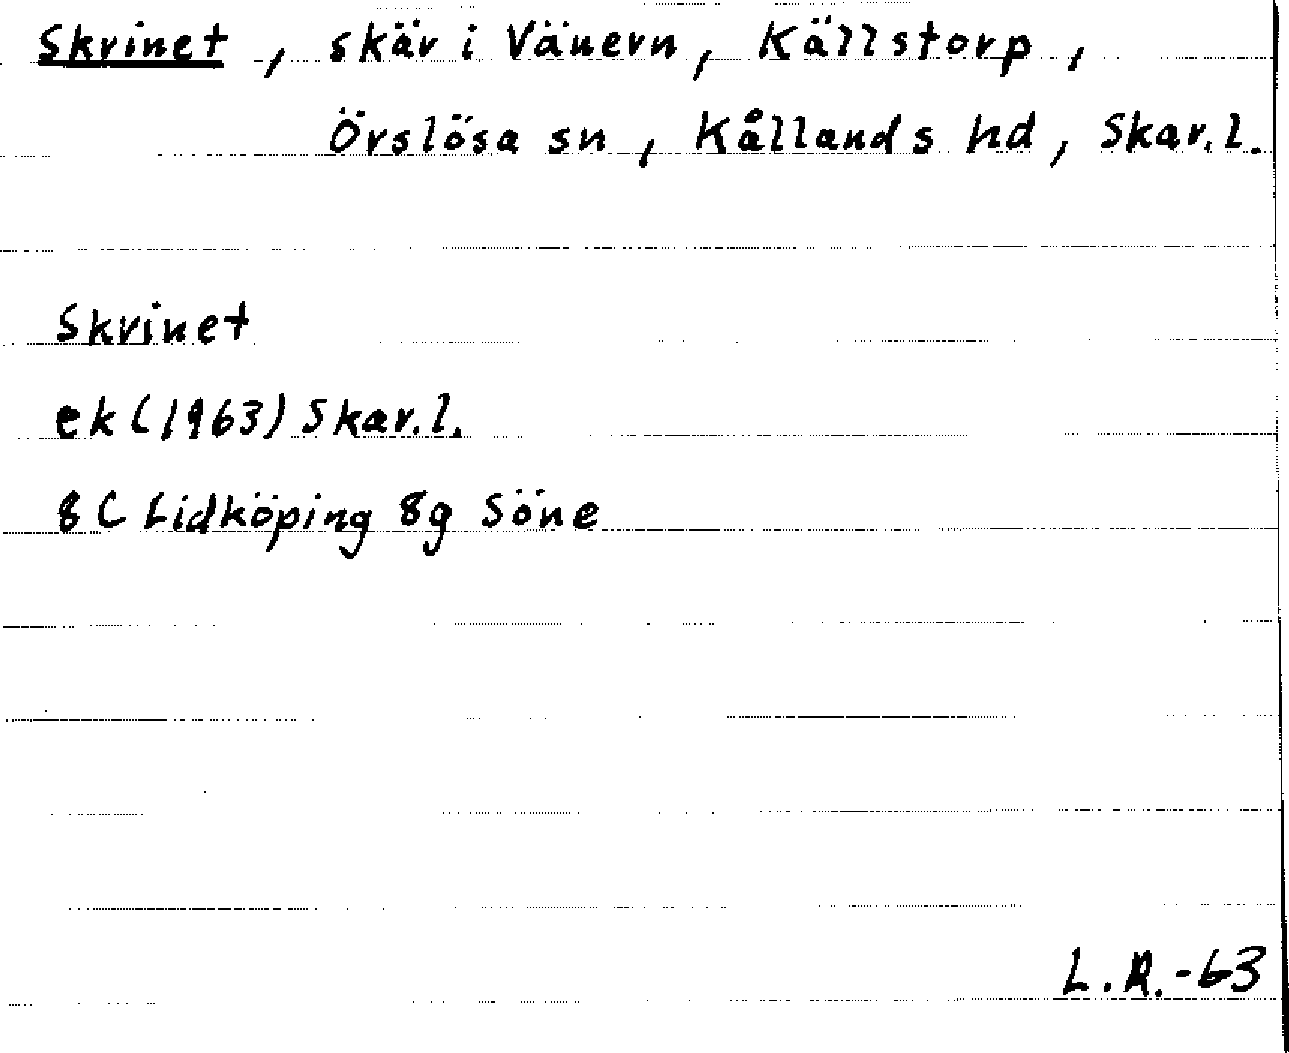 Skrinet, skär i Vänern, Källstorp,
Örslösa sn, Kållands hd, Skar.l.
Skrinet
ek (1963) Skar.l.
8 C Lidköping 8g Söne
L.R.-63